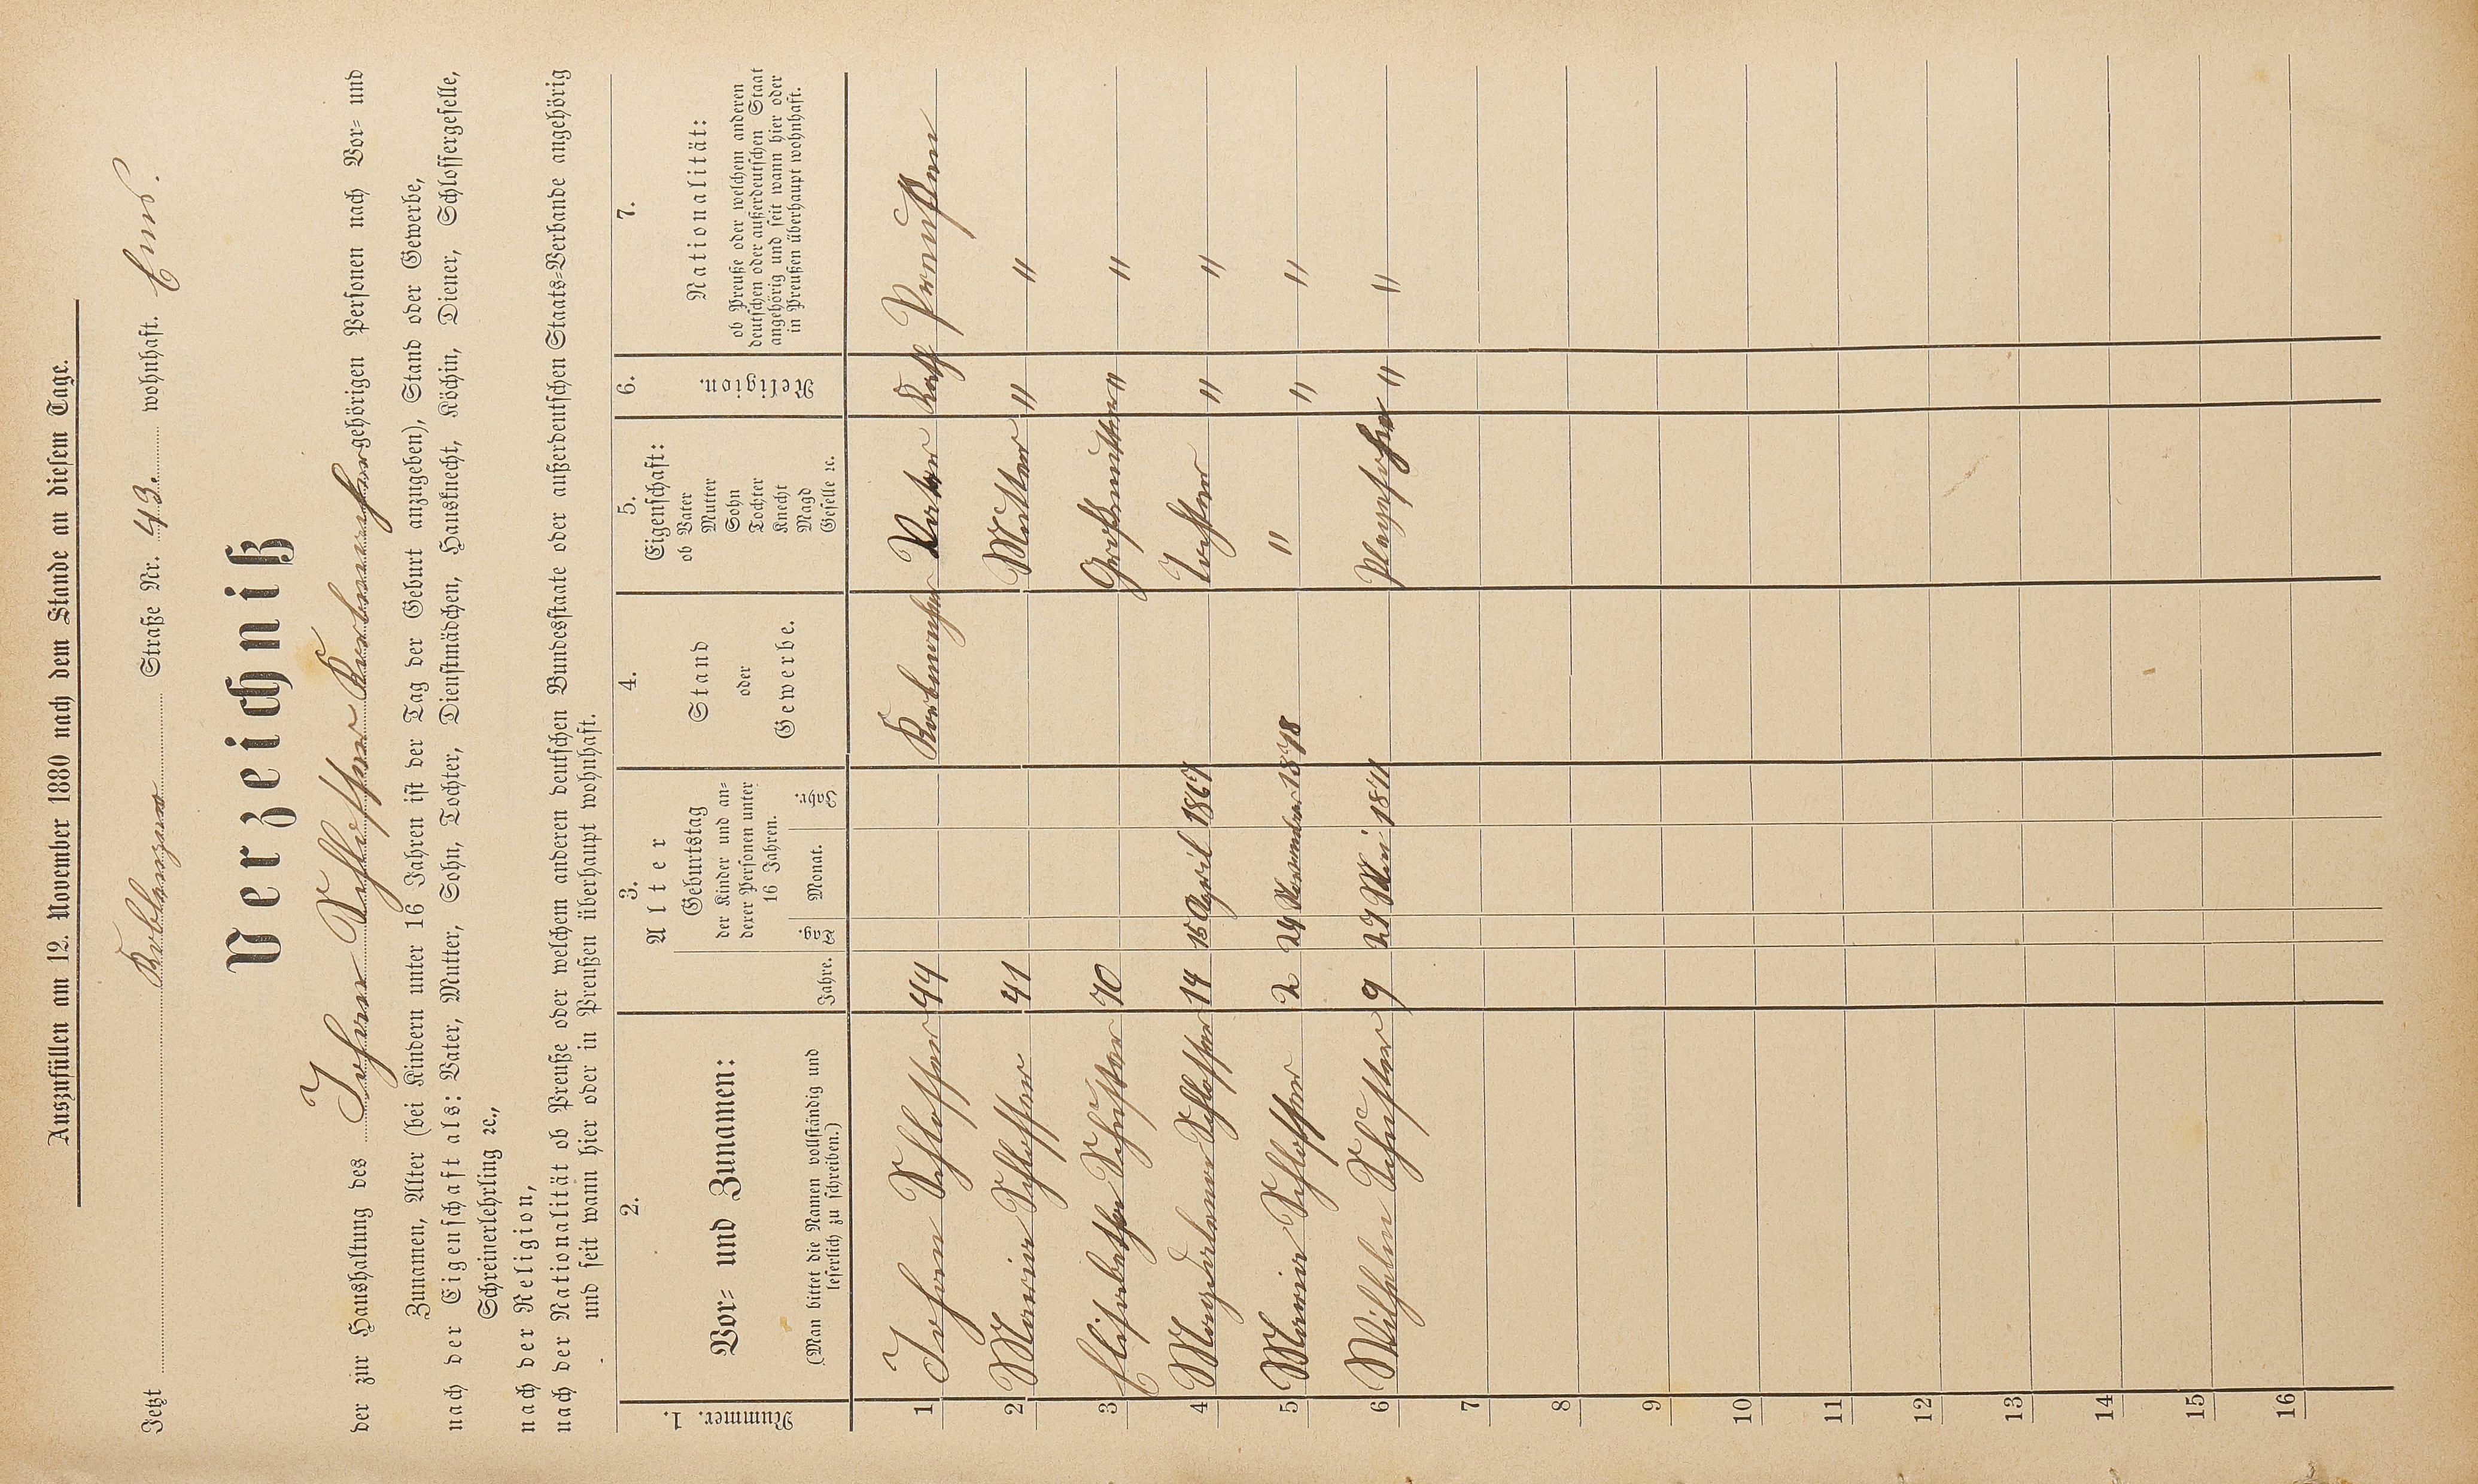 Auszufüllen am 12. November 1880 nach dem Stande an diesem Tage.
Jetzt Koblenzer Straße Nr. 43. wohnhaft. Ems.
Verzeichniß
der zur Haushaltung des Johann Schlosser Korbmacher gehörigen Personen nach Vor- und
Zunamen, Alter (bei Kindern unter 16 Jahren ist der Tag der Geburt anzugeben), Stand oder Gewerbe,
nach der Eigenschaft als: Vater, Mutter, Sohn, Tochter, Dienstmädchen, Hausknecht, Köchin, Diener, Schlossergeselle,
Schreinerlehrling ꝛc.,
nach der Religion,
nach der Nationalität ob Preuße oder welchem anderen deutschen Bundesstaate oder außerdeutschen Staats-Verbande angehörig
und seit wann hier oder in Preußen überhaupt wohnhaft.
1. Nummer.
2. Vor- und Zunamen:
(Man bittet die Namen vollständig und
leserlich zu schreiben.)
3. Alter
Jahre.
Geburtstag
der Kinder und an-
derer Personen unter
16 Jahren.
Tag. Monat. Jahr.
4. Stand
oder
Gewerbe.
5. Eigenschaft:
ob Vater
Mutter
Sohn
Tochter
Knecht
Magd
Geselle ꝛc.
6. Religion.
7. Nationalität:
ob Preuße oder welchem anderen
deutschen oder außerdeutschen Staat
angehörig und seit wann hier oder
in Preußen überhaupt wohnhaft.
1 Johann Schlosser 44 Korbmacher Vater Kath Preußen
2 Maria Schlosser 41 Mutter " "
3 Elisabetha Schuster 70 Großmutter " "
4 Magdalena Schlosser 14 15 April 1867 Tochter " "
5 Maria Schlosser 2 24 November 1878 " " "
6 Wilhelm Schuster 9 27 Mai 1871 " "
7
8
9
10
11
12
13
14
15
16